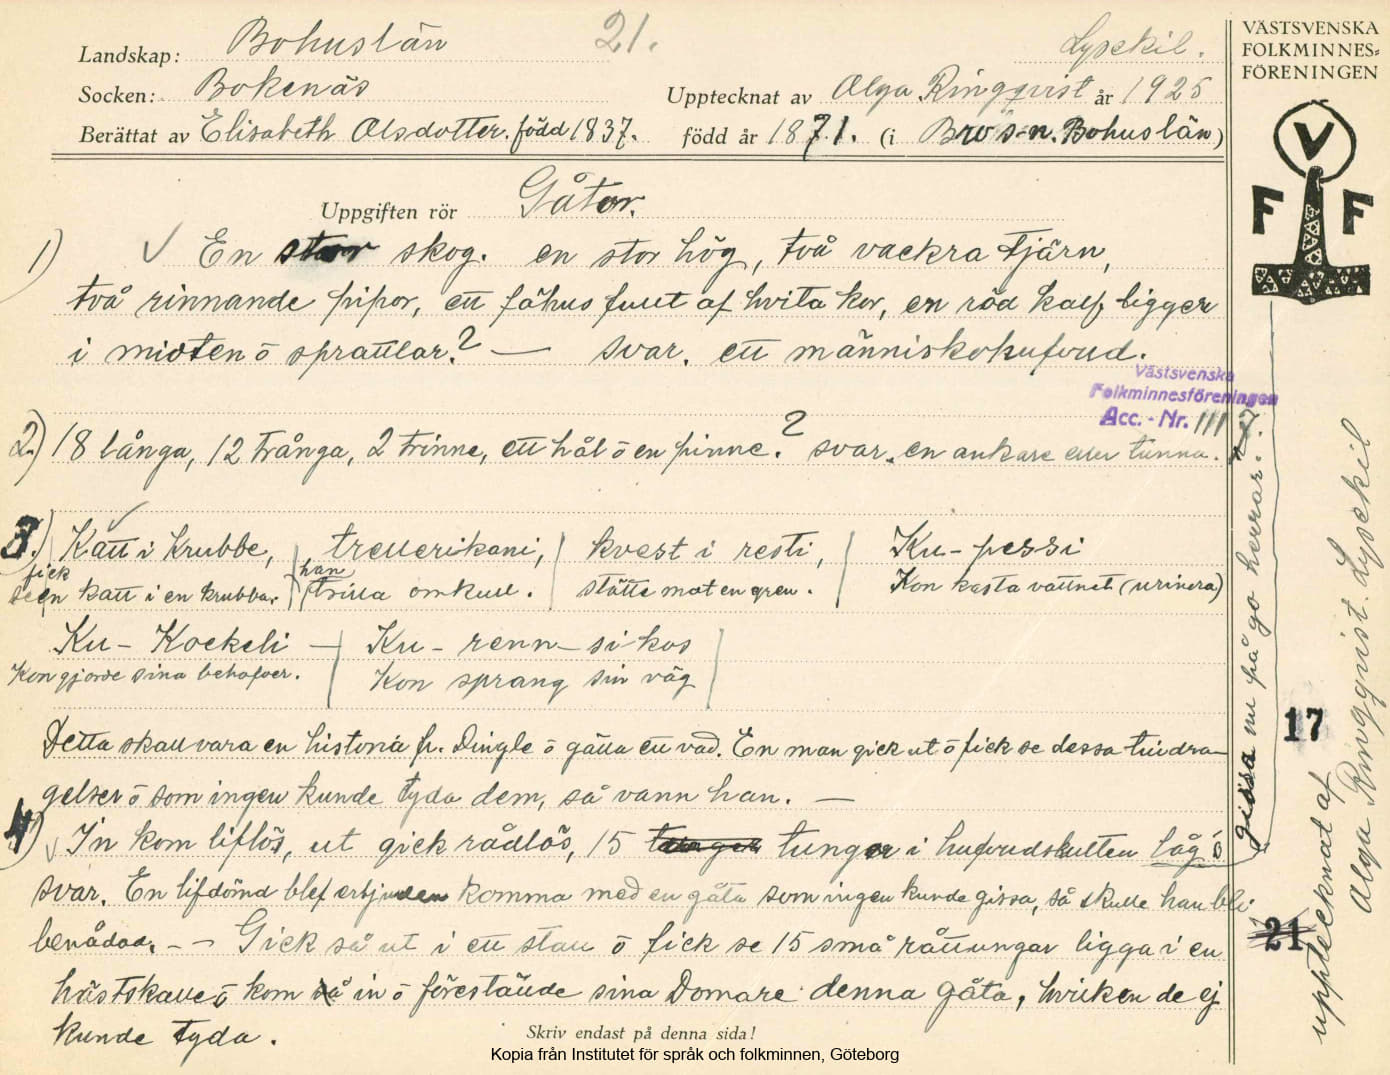 Landskap: Bohuslän 21. Lysekil.
Socken: Bokenäs Upptecknat av Olga Ringqvist år 1925
Berättat av Elisabeth Olsdotter. född 1837. född år 1871. (i Bro s-n. Bohuslän)
VÄSTSVENSKA
FOLKMINNES-
FÖRENINGEN
V
F F
Uppgiften rör Gåtor.
1) En stor skog. en stor hög, två vackra tjärn,
två rinnande pipor, ett fähus fullt af hvita kor, en röd kalf ligger
i midten ö sprattlar? — svar. ett människohufvud.
Västsvenska
Folkminnesföreningen
Acc. - Nr. 1117
2) 18 långa, 12 trånga, 2 trinne, ett hål ö en pinne.? svar. en ankare eller tunna.
3.) Katt i krubbe, trellerikani, kvest i resti, Ku-pessi
fick se en katt i en krubba. han trilla omkull. stötte mot en gren. Kon kasta vattnet (urinera)
Ku- Kockeli — Ku- renn- si kos
Kon gjorde sina behofver. Kon sprang sin väg
Detta skall vara en historia fr. Dingle ö gälla ett vad. En man gick ut ö fick se dessa tilldra-
gelser ö som ingen kunde tyda dem, så vann han. —
4) In kom liflös, ut gick rådlös, 15 tungor i hufvudskulten låg ö
svar. En lifdömd blef erbjuden komma med en gåta som ingen kunde gissa, så skulle han bli
benådad. - - Gick så ut i ett stall ö fick se 15 små råttungar ligga i en
hästskalle ö kom så in ö förestäude sina Domare denna gåta, hvilken de ej
kunde tyda.
gissa nu på go herrar.
17
21
upptecknat af
Olga Ringqvist. Lysekil
Skriv endast på denna sida!
Kopia från Institutet för språk och folkminnen, Göteborg